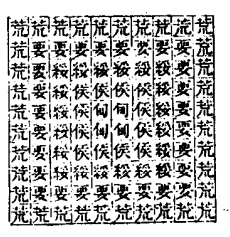 荒荒荒荒荒荒荒荒荒荒
荒要要要要要要要要荒
荒要綏綏綏綏綏綏要荒
荒要綏侯侯侯侯綏要荒
荒要綏侯甸甸侯綏要荒
荒要綏侯甸甸侯綏要荒
荒要綏侯侯侯侯綏要荒
荒要綏綏綏綏綏綏要荒
荒要要要要要要要要荒
荒荒荒荒荒荒荒荒荒荒